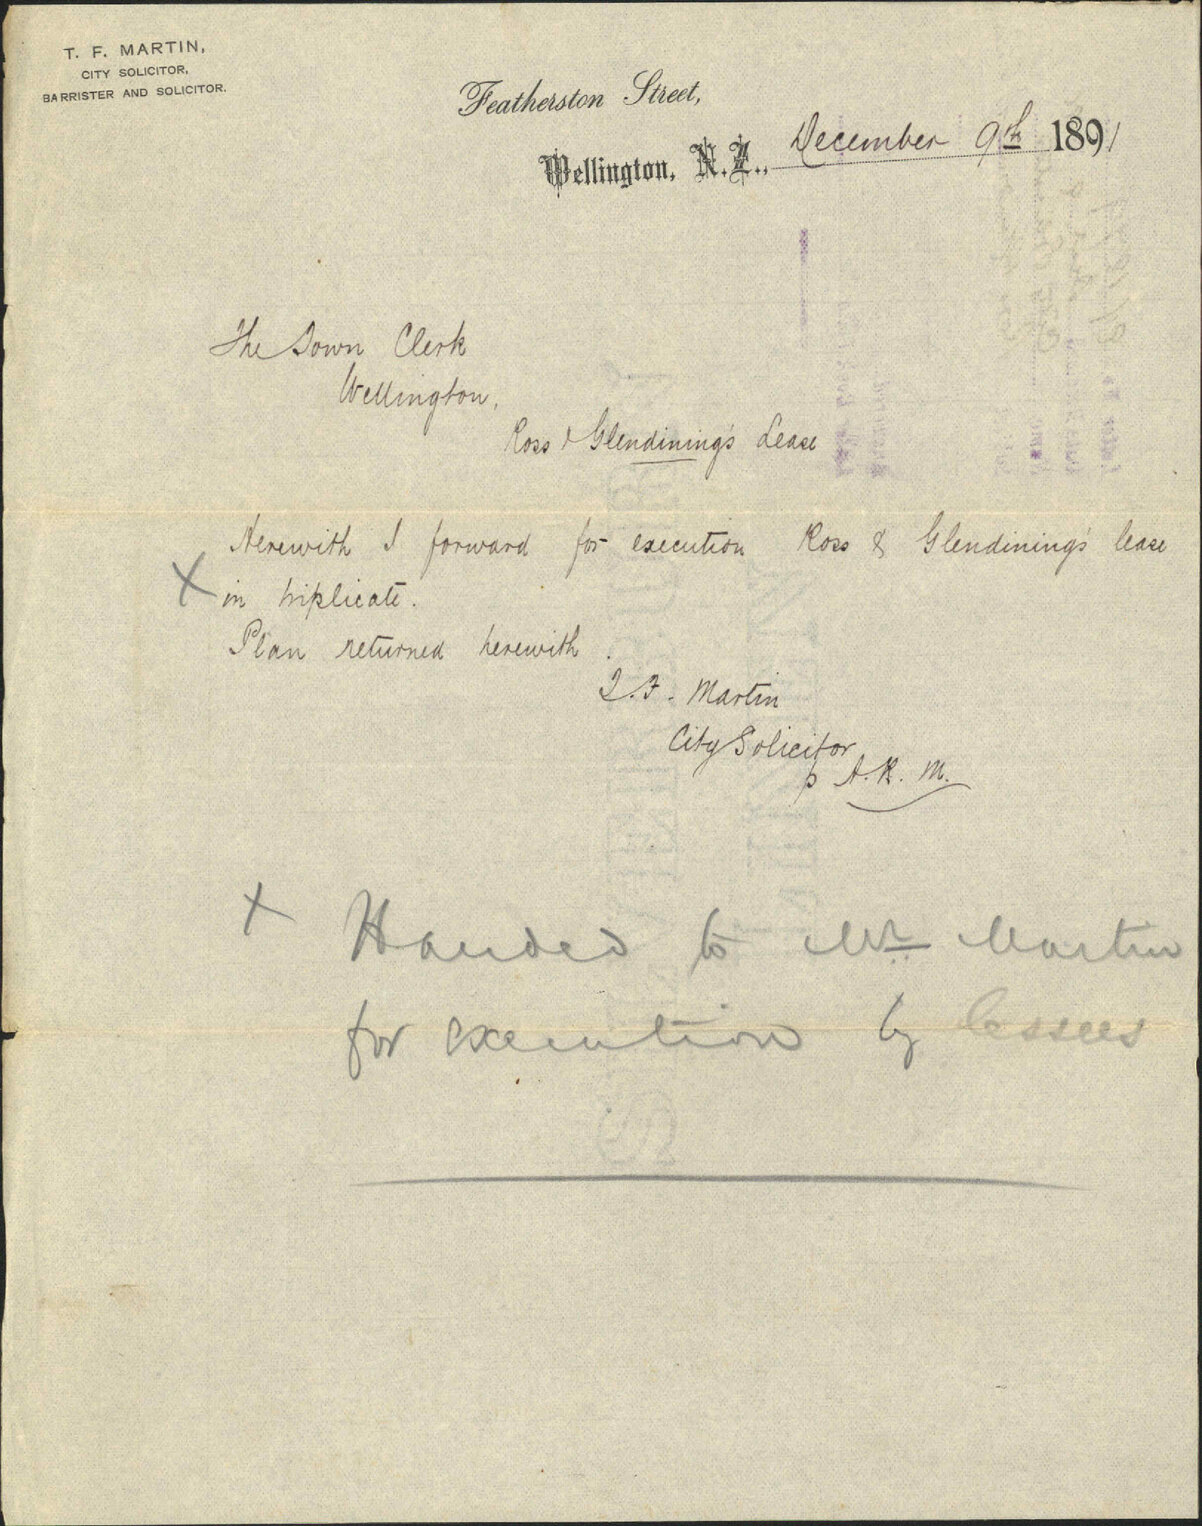 T. F. MARTIN,
CITY SOLICITOR,
BARRISTER AND SOLICITOR.
Featherston Street,
Wellington, N.Z., December 9th 1891
The Town Clerk
Wellington,
Ross & Glendining's Lease
Herewith I forward for execution Ross & Glendining's lease
X in triplicate.
Plan returned herewith.
T.F. Martin
City Solicitor
p A.R.M.
X Handed to Mr Martin
for execution by lessees